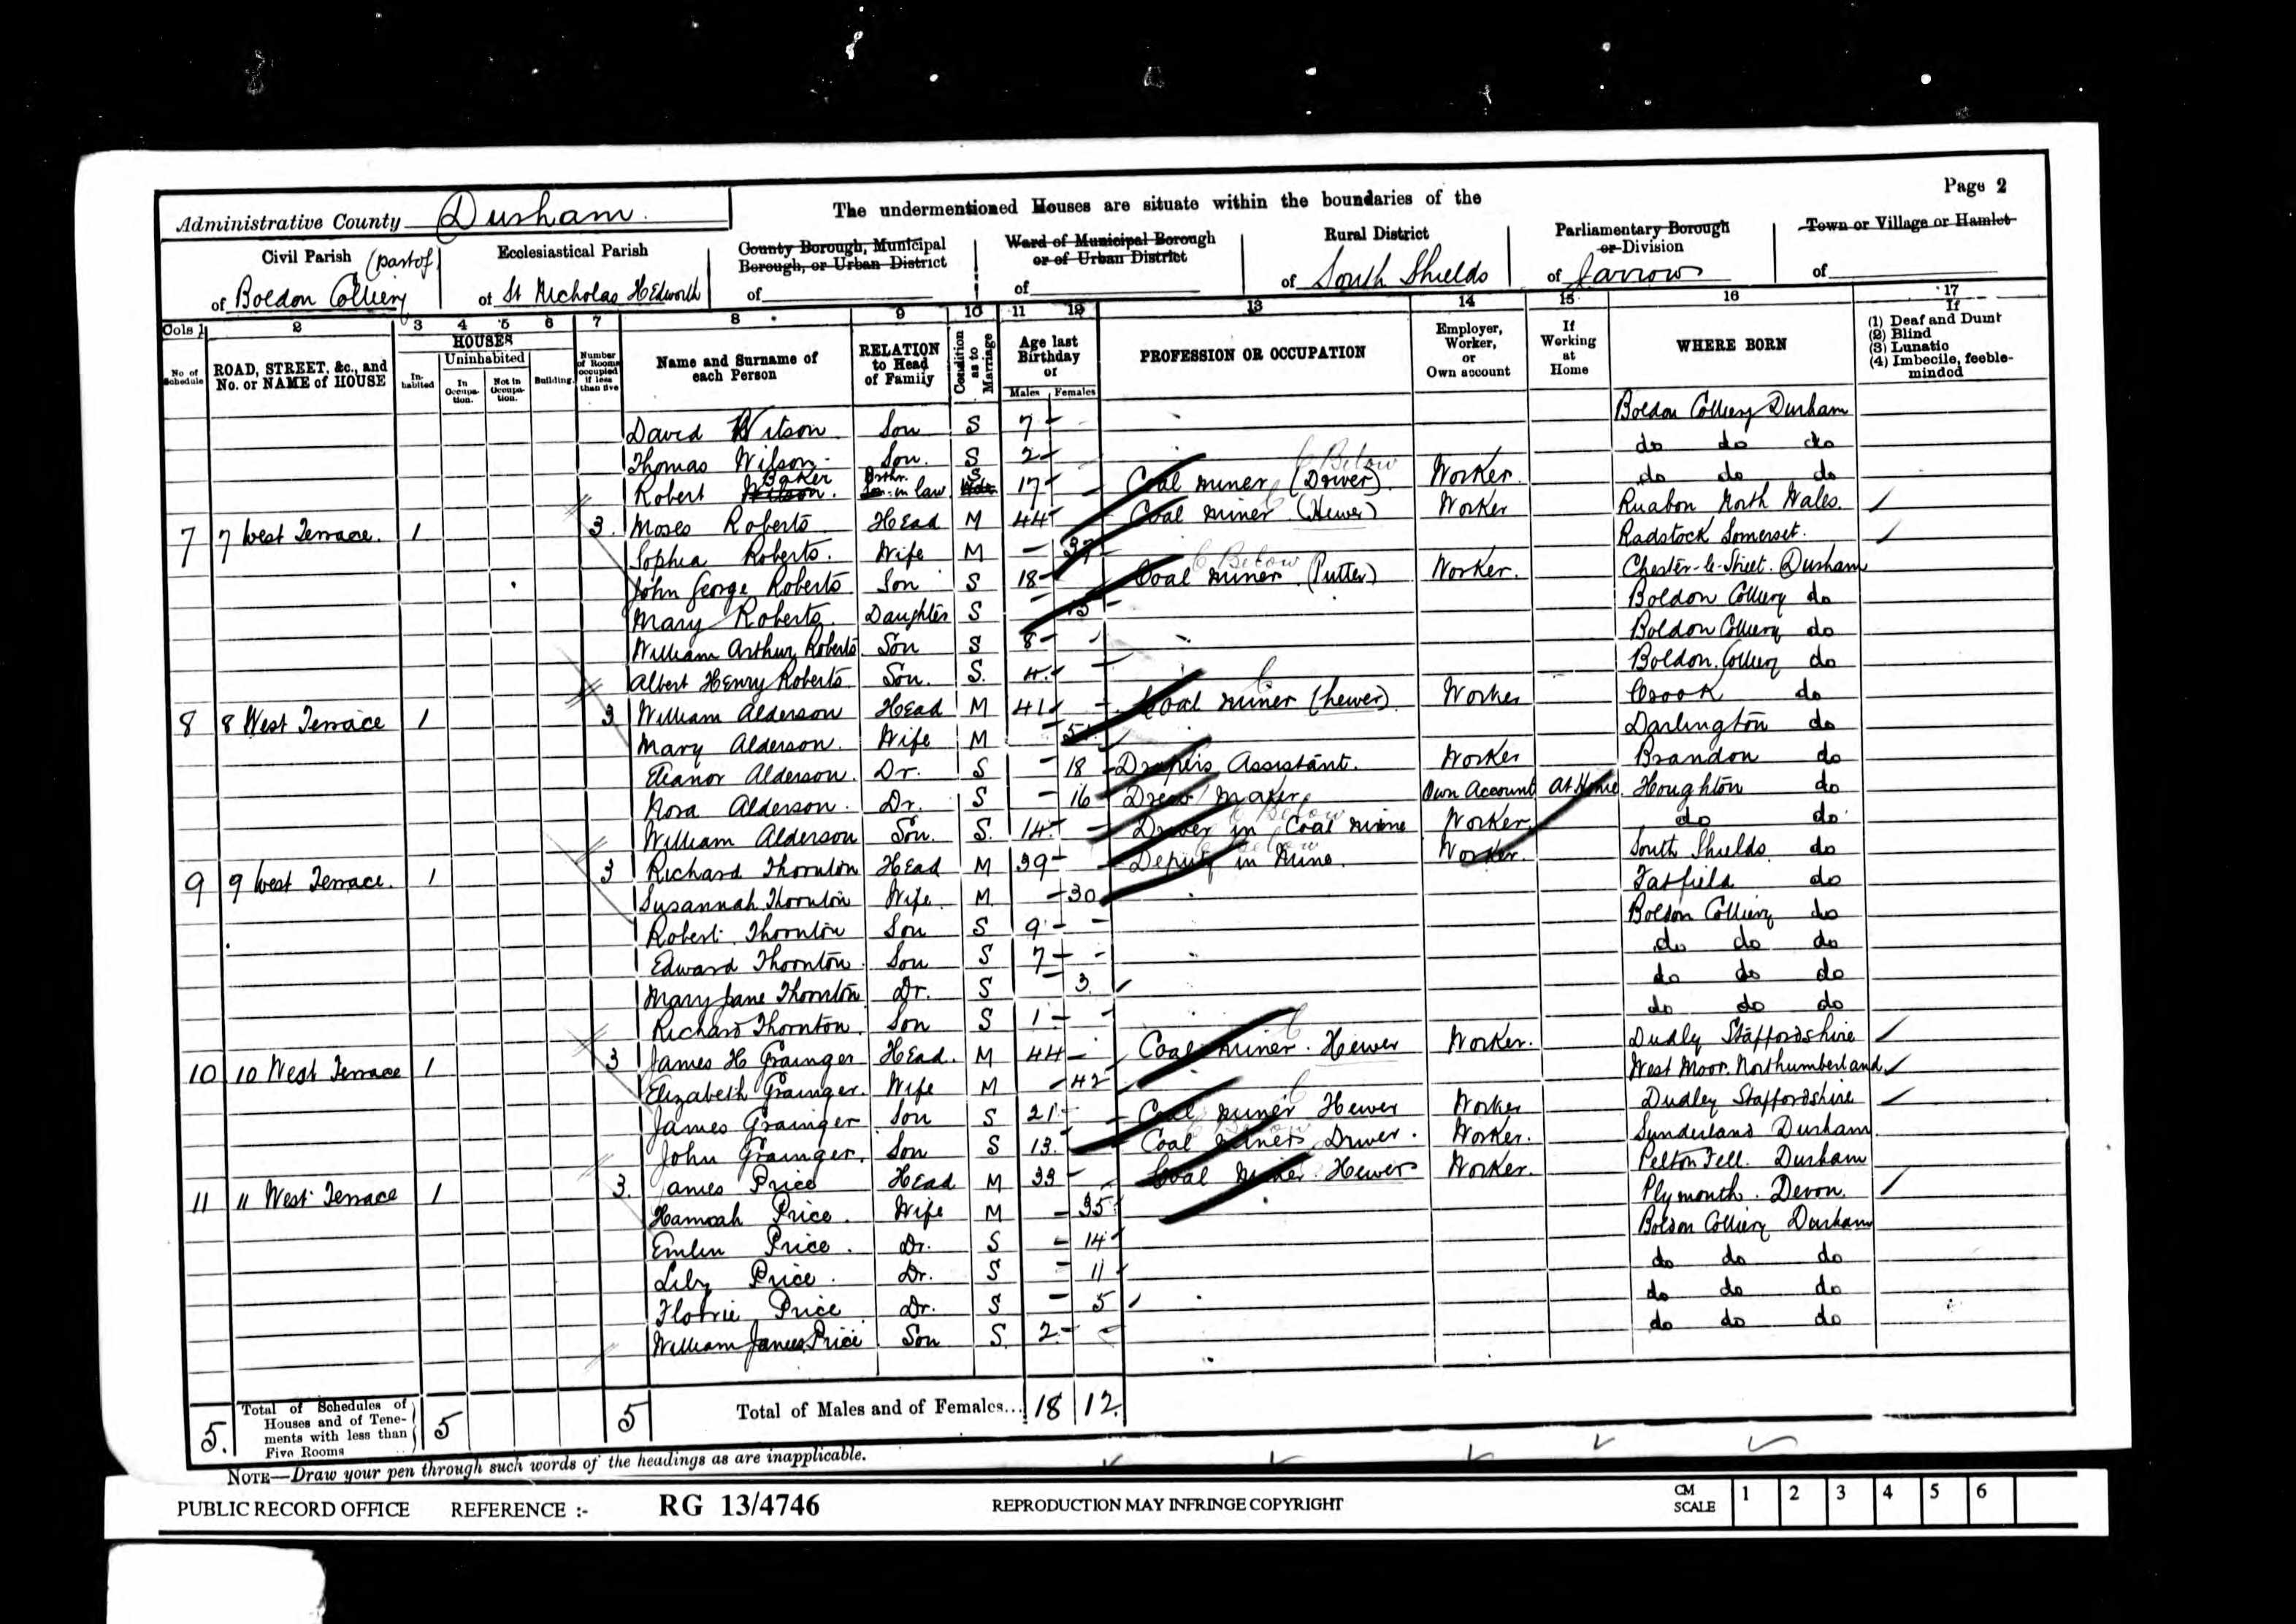 Page 2
Administrative County Durham.
The undermentioned Houses are situate within the boundaries of the
Civil Parish (part of) of Boldon Colliery
Ecclesiastical Parish of St Nicholas Hedworth
County Borough, Municipal Borough, or Urban District of
Ward of Municipal Borough or of Urban District of
Rural District of South Shields
Parliamentary Borough or Division of Jarrow
Town or Village or Hamlet of
Cols 1 2 3 4 5 6 7 8 9 10 11 12 13 14 15 16 17
No of Schedule
ROAD, STREET, &c., and No. or NAME of HOUSE
HOUSES
In-habited
Uninhabited
In Occupa-tion.
Not in Occupa-tion.
Building.
Number of Rooms occupied if less than five
Name and Surname of each Person
RELATION to Head of Family
Condition as to Marriage
Age last Birthday of
Males Females
PROFESSION OR OCCUPATION
Employer, Worker, or Own account
If Working at Home
WHERE BORN
If
(1) Deaf and Dumb
(2) Blind
(3) Lunatic
(4) Imbecile, feeble-minded
David Wilson Son S 7 Boldon Colliery Durham
Thomas Wilson Son. S 2 do do do
Robert Wilson. Baker Brthr. Son-in law S 17 Coal Miner (Driver) Below Worker. do do do
7 7 West Terrace. 1 3. Moses Roberts Head M 44 Coal Miner (Hewer) Worker Ruabon North Wales.
Sophia Roberts. Wife M 37 Radstock Somerset.
John George Roberts Son S 18 Coal Miner (Putter) Below Worker. Chester-le-Street. Durham
Mary Roberts. Daughter S 13 Boldon Colliery do
William Arthur Roberts Son S 8 Boldon Colliery do
Albert Henry Roberts Son. S. 4 Boldon Colliery do
8 8 West Terrace 1 3 William Alderson Head M 41 Coal Miner (hewer) Worker Crook do
Mary Alderson. Wife M Darlington do
Eleanor Alderson. Dr. S 18 Drapers Assistant. Worker Brandon do
Nora Alderson. Dr. S 16 Dress Maker Own Account At Home Houghton do
William Alderson Son. S. 14 Driver in Coal Mine Below Worker do do
9 9 West Terrace. 1 3 Richard Thornton Head M 39 Deputy in Mine. Below Worker. South Shields do
Susannah Thornton Wife M 30 Fatfield do
Robert Thornton Son S 9 Boldon Colliery do
Edward Thornton Son S 7 do do do
Mary Jane Thornton Dr. S 3 do do do
Richard Thornton. Son S 1 do do do
10 10 West Terrace 1 3 James H Grainger Head. M 44 Coal Miner. Hewer Worker. Dudley Staffordshire
Elizabeth Grainger. Wife M 42 West Moor. Northumberland
James Grainger Son S 21 Coal Miner Hewer Worker Dudley Staffordshire
John Grainger. Son S 13 Coal Miners Driver. Below Worker. Sunderland Durham.
11 11 West Terrace 1 3. James Price Head M 33 Coal Miner Hewer Worker. Pelton Fell. Durham
Hannah Price. Wife M 35 Plymouth. Devon.
Emlen Price. Dr. S 14 Boldon Colliery Durham
Lily Price. Dr. S 11 do do do
Florrie Price Dr. S 5 do do do
William James Price Son S. 2 do do do
5. Total of Schedules of Houses and of Tene-ments with less than Five Rooms 5 5 Total of Males and of Females... 18 12
NOTE—Draw your pen through such words of the headings as are inapplicable.
PUBLIC RECORD OFFICE REFERENCE :- RG 13/4746 REPRODUCTION MAY INFRINGE COPYRIGHT CM SCALE 1 2 3 4 5 6